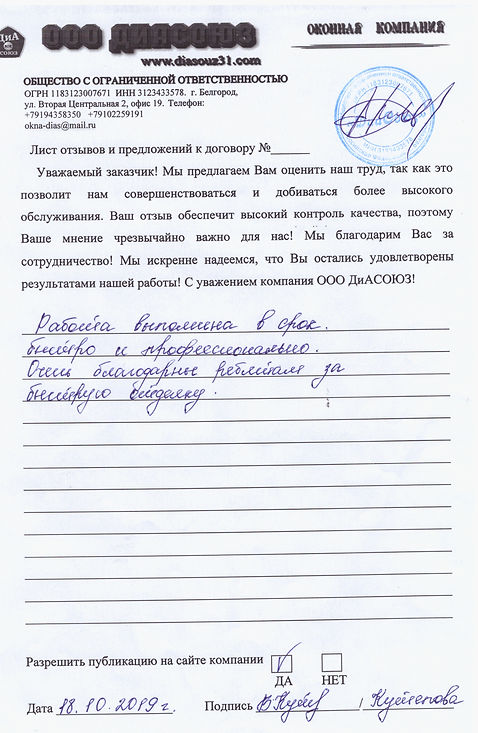 ДиА
СОЮЗ
ООО ДИАСОЮЗ
ОКОННАЯ КОМПАНИЯ
www.diasouz31.com
ОБЩЕСТВО С ОГРАНИЧЕННОЙ ОТВЕТСТВЕННОСТЬЮ
ОГРН 1183123007671 ИНН 3123433578. г. Белгород,
ул. Вторая Центральная 2, офис 19. Телефон:
+79194358350 +79102259191
okna-dias@mail.ru
Лист отзывов и предложений к договору №______
Уважаемый заказчик! Мы предлагаем Вам оценить наш труд, так как это
позволит нам совершенствоваться и добиваться более высокого
обслуживания. Ваш отзыв обеспечит высокий контроль качества, поэтому
Ваше мнение чрезвычайно важно для нас! Мы благодарим Вас за
сотрудничество! Мы искренне надеемся, что Вы остались удовлетворены
результатами нашей работы! С уважением компания ООО ДиАСОЮЗ!
Работа выполнена в срок.
быстро и профессионально.
Очень благодарны ребятам за
быструю отделку.
Разрешить публикацию на сайте компании
ДА НЕТ
Дата 18.10.2019г. Подпись / Кутепова